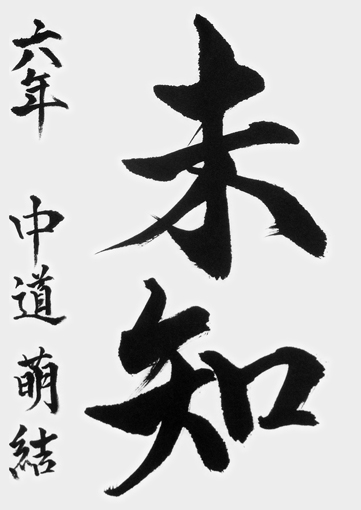 未知
六年 中道萌結